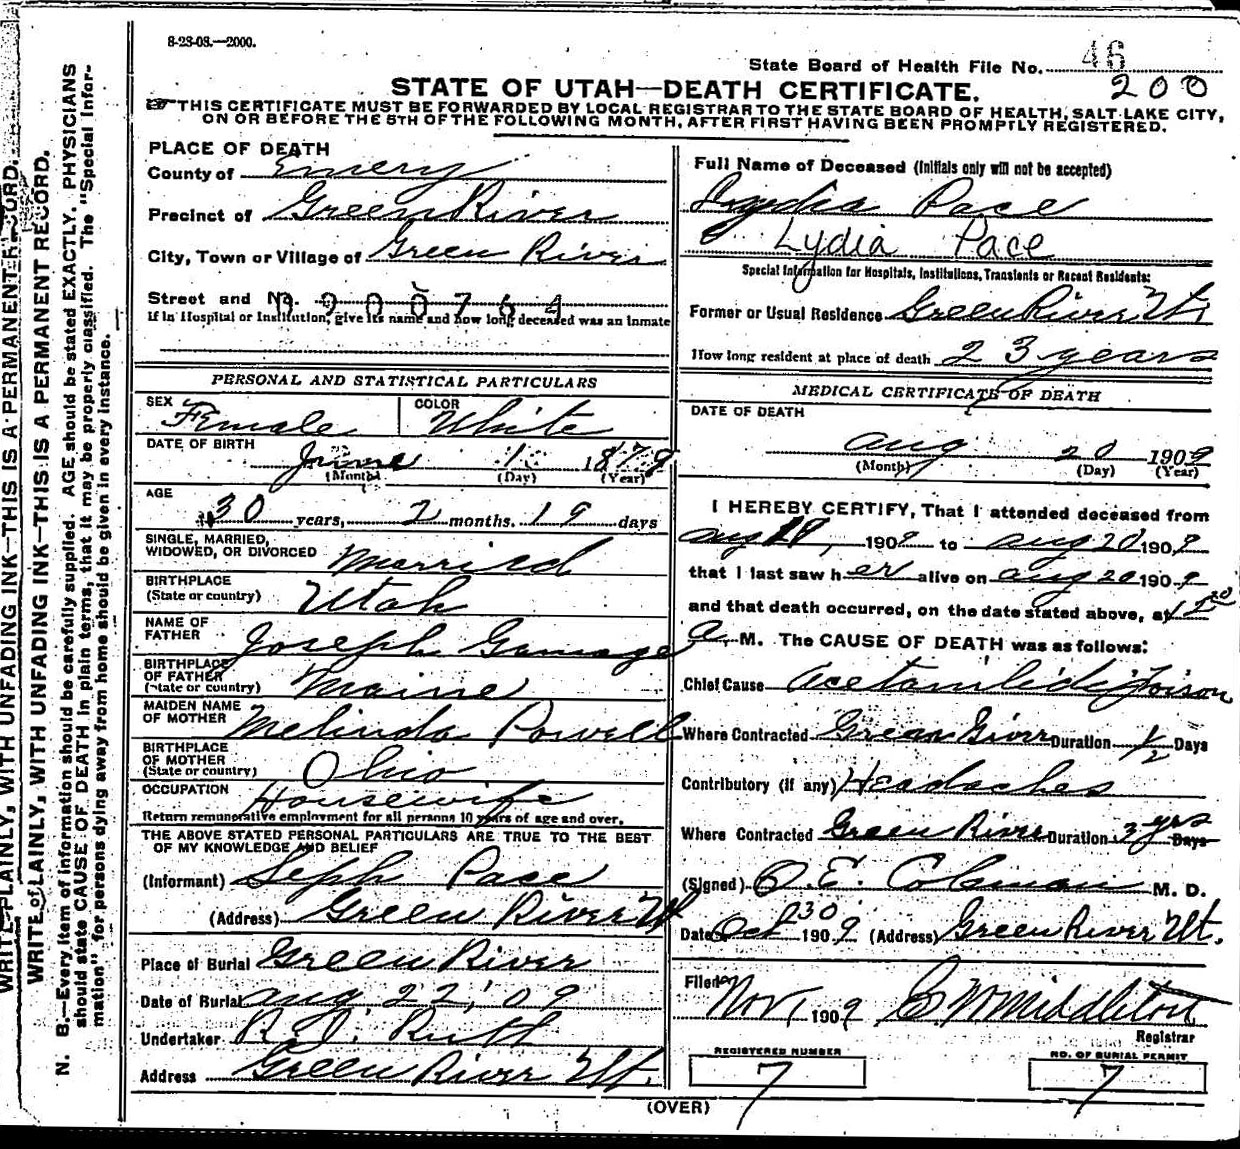 8-23-08.—2000.
State Board of Health File No. 46
200
STATE OF UTAH—DEATH CERTIFICATE.
THIS CERTIFICATE MUST BE FORWARDED BY LOCAL REGISTRAR TO THE STATE BOARD OF HEALTH, SALT LAKE CITY,
ON OR BEFORE THE 5TH OF THE FOLLOWING MONTH, AFTER FIRST HAVING BEEN PROMPTLY REGISTERED.
WRITE PLAINLY, WITH UNFADING INK—THIS IS A PERMANENT RECORD.
WRITE PLAINLY, WITH UNFADING INK—THIS IS A PERMANENT RECORD.
N. B.—Every item of information should be carefully supplied. AGE should be stated EXACTLY. PHYSICIANS
should state CAUSE OF DEATH in plain terms, that it may be properly classified. The "Special Infor-
mation" for persons dying away from home should be given in every instance.
PLACE OF DEATH
County of Emery
Precinct of Green River
City, Town or Village of Green River
Street and No. 0900764
If in Hospital or Institution, give its name and how long deceased was an inmate
Full Name of Deceased (Initials only will not be accepted)
Lydia Pace
Lydia Pace
Special Information for Hospitals, Institutions, Transients or Recent Residents:
Former or Usual Residence Green River Ut
How long resident at place of death 23 years
PERSONAL AND STATISTICAL PARTICULARS
SEX Female
COLOR White
DATE OF BIRTH
June 1 1879
(Month) (Day) (Year)
AGE
30 years, 2 months. 19 days
SINGLE, MARRIED,
WIDOWED, OR DIVORCED Married
BIRTHPLACE
(State or country) Utah
NAME OF
FATHER Joseph Gamage
BIRTHPLACE
OF FATHER
(State or country) Maine
MAIDEN NAME
OF MOTHER Melinda Powell
BIRTHPLACE
OF MOTHER
(State or country) Ohio
OCCUPATION Housewife
Return remunerative employment for all persons 10 years of age and over.
THE ABOVE STATED PERSONAL PARTICULARS ARE TRUE TO THE BEST
OF MY KNOWLEDGE AND BELIEF
(Informant) Seph Pace
(Address) Green River Ut
Place of Burial Green River
Date of Burial Aug 22, '09
Undertaker Ruth
Address Green River Ut.
MEDICAL CERTIFICATE OF DEATH
DATE OF DEATH
Aug 20 1909
(Month) (Day) (Year)
I HEREBY CERTIFY, That I attended deceased from
Aug 19, 1909 to Aug 20 1909
that I last saw her alive on Aug 20 1909
and that death occurred, on the date stated above, at
a. M. The CAUSE OF DEATH was as follows:
Chief Cause Acetanilide Poison
Where Contracted Green River Duration 1/2 Days
Contributory (if any) Headaches
Where Contracted Green River Duration 3 yrs Days
(Signed) O. E. Coleman M. D.
Date Oct 30 1909 (Address) Green River Ut.
Filed Nov 1 1909 C W Middleton
Registrar
REGISTERED NUMBER
7
NO. OF BURIAL PERMIT
7
(OVER)